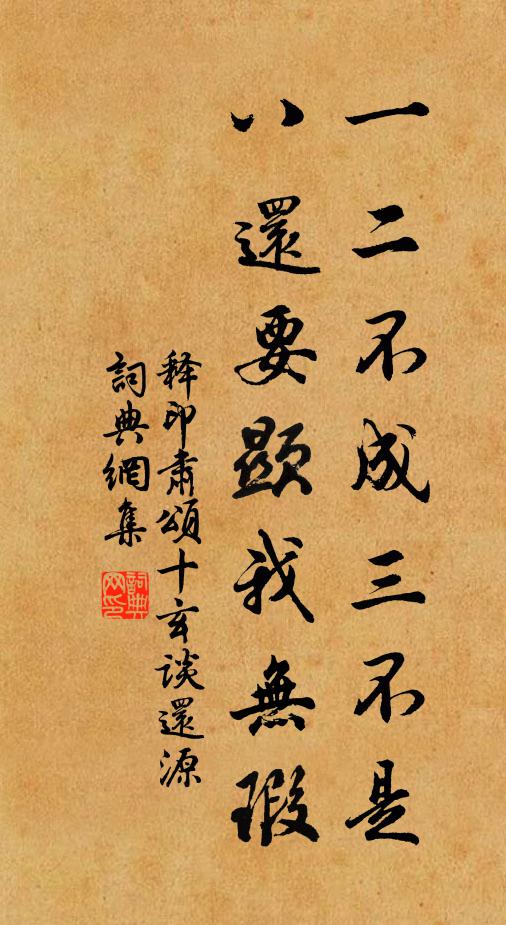 一二不成三不是
八還要顯我無瑕
释印肅頌十玄谈還源
詞典網集
詞典网印